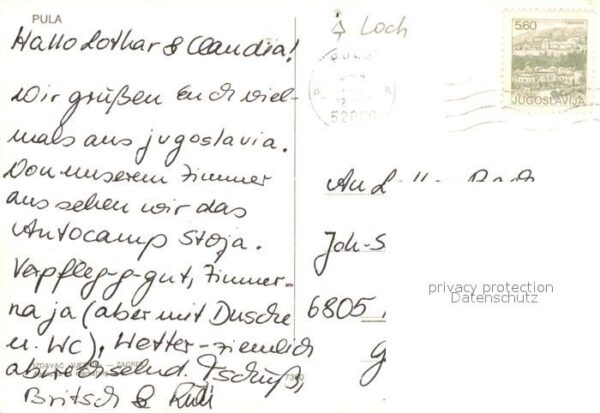 PULA
Hallo Lothar & Claudia!
Wir grüßen Euch viel-
mals aus Jugoslavia.
Von unserem Zimmer
aus sehen wir das
Autocamp Stoja.
Verpfleg-g-gut, Zimmer-
na ja (aber mit Dusche
u. WC), Wetter-ziemlich
abwechselnd. Tschüß,
Britsch & Rudi
ZAGREB
Loch
5.60
JUGOSLAVIJA
52000
An
Joh-S
6805
privacy protection
Datenschutz